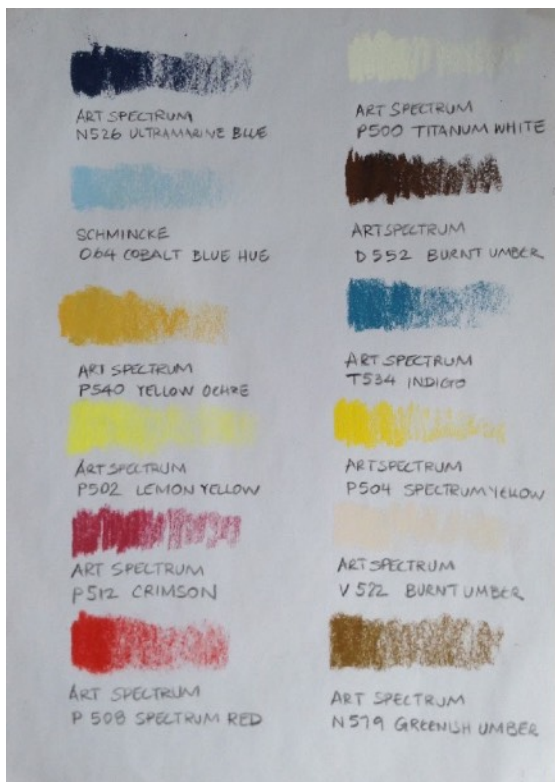 ART SPECTRUM
N526 ULTRAMARINE BLUE
SCHMINCKE
064 COBALT BLUE HUE
ART SPECTRUM
P540 YELLOW OCHRE
ART SPECTRUM
P502 LEMON YELLOW
ART SPECTRUM
P512 CRIMSON
ART SPECTRUM
P 508 SPECTRUM RED
ART SPECTRUM
P500 TITANUM WHITE
ART SPECTRUM
D 552 BURNT UMBER
ART SPECTRUM
T534 INDIGO
ART SPECTRUM
P504 SPECTRUM YELLOW
ART SPECTRUM
V 522 BURNT UMBER
ART SPECTRUM
N579 GREENISH UMBER